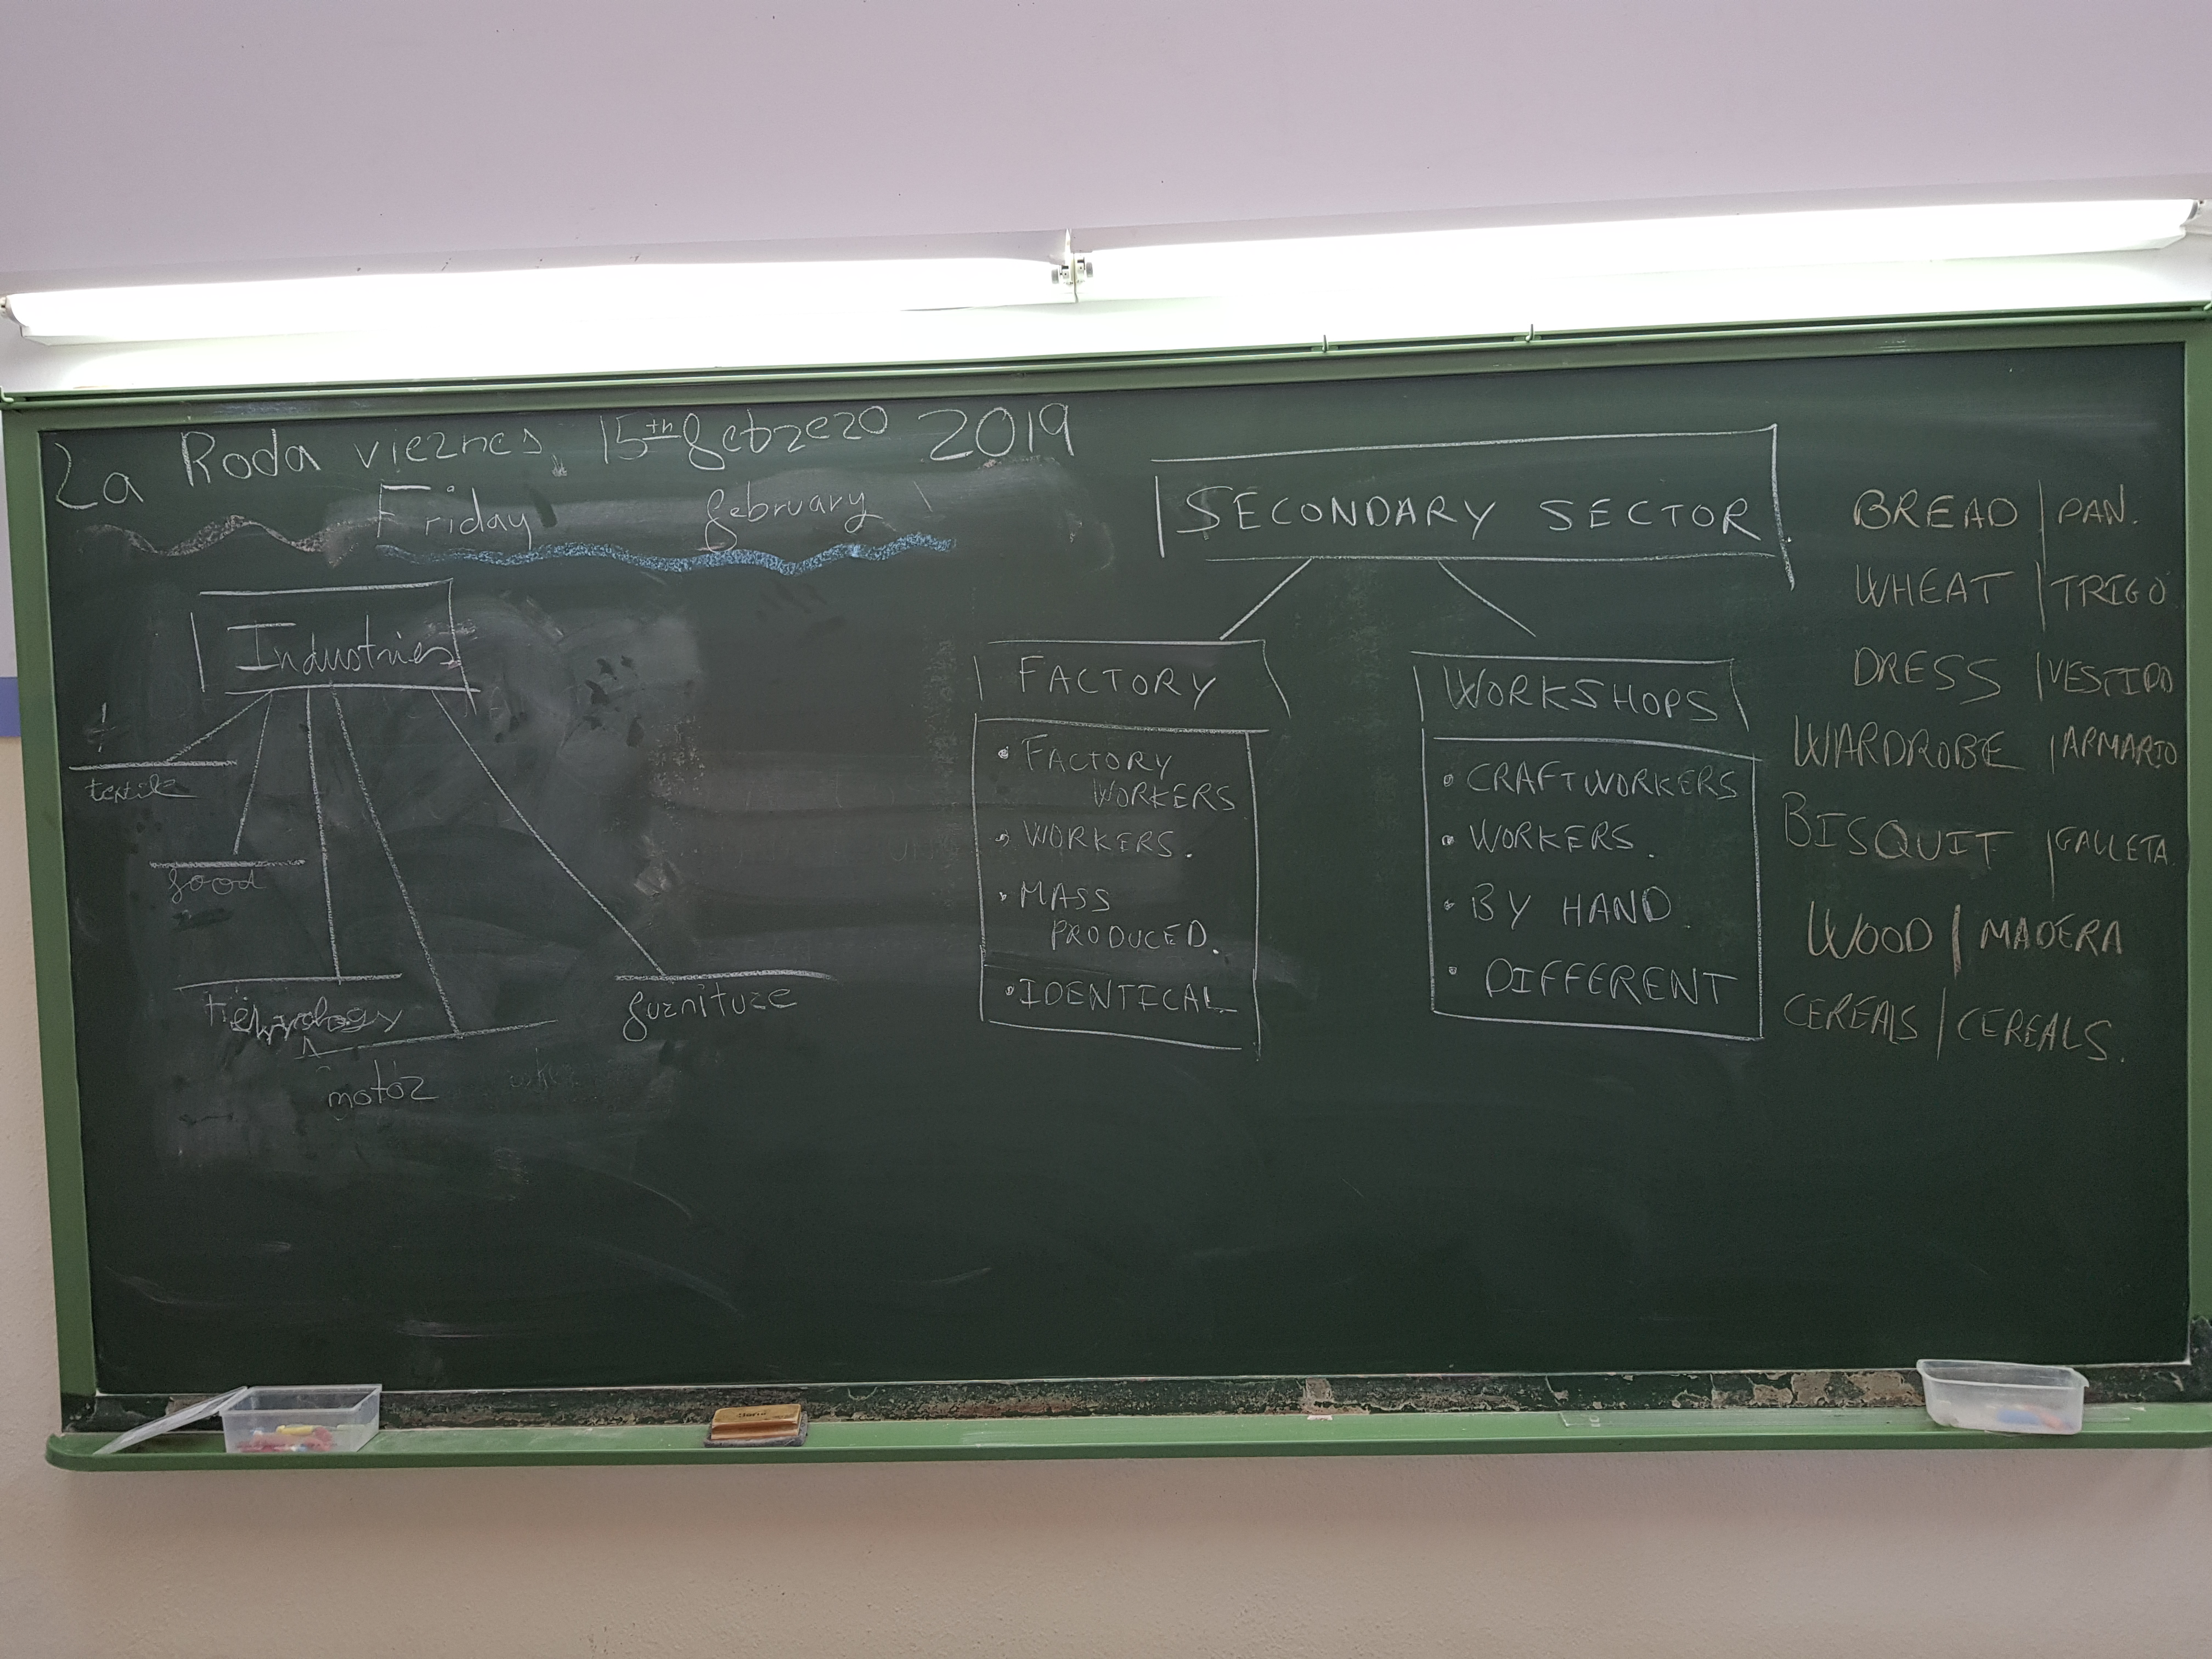 La Roda viernes, 15th febrero 2019
Friday february
Industries
textile
food
motor
furniture
SECONDARY SECTOR
FACTORY
• FACTORY
WORKERS
• WORKERS.
• MASS
PRODUCED.
• IDENTICAL
WORKSHOPS
• CRAFTWORKERS
• WORKERS.
• BY HAND.
• DIFFERENT
BREAD | PAN.
WHEAT | TRIGO
DRESS | VESTIDO
WARDROBE | ARMARIO
BISQUIT | GALLETA.
WOOD | MADERA
CEREALS | CEREALS.